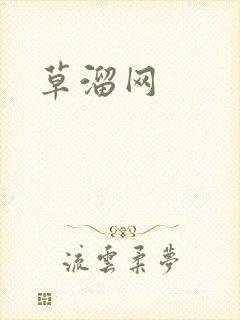 草溜网
流雲柔夢